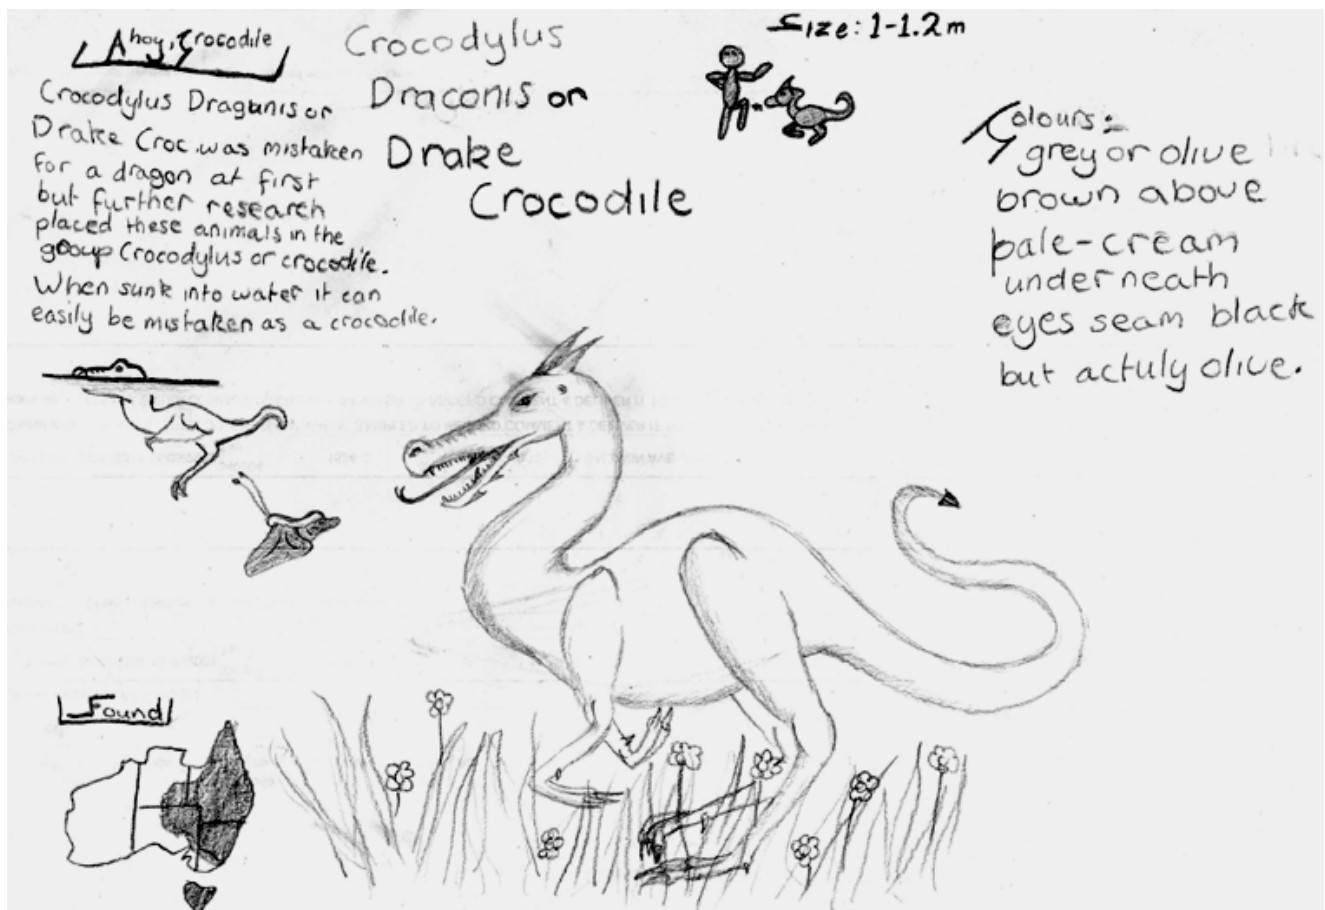 Ahoy, Crocodile
Crocodylus Dragunis or
Drake Croc. was mistaken
for a dragon at first
but further research
placed these animals in the
group Crocodylus or crocodile.
When sunk into water it can
easily be mistaken as a crocodile.
Crocodylus
Draconis or
Drake
Crocodile
Size: 1-1.2m
Colours:
grey or olive
brown above
pale-cream
underneath
eyes seam black
but actuly olive.
Found